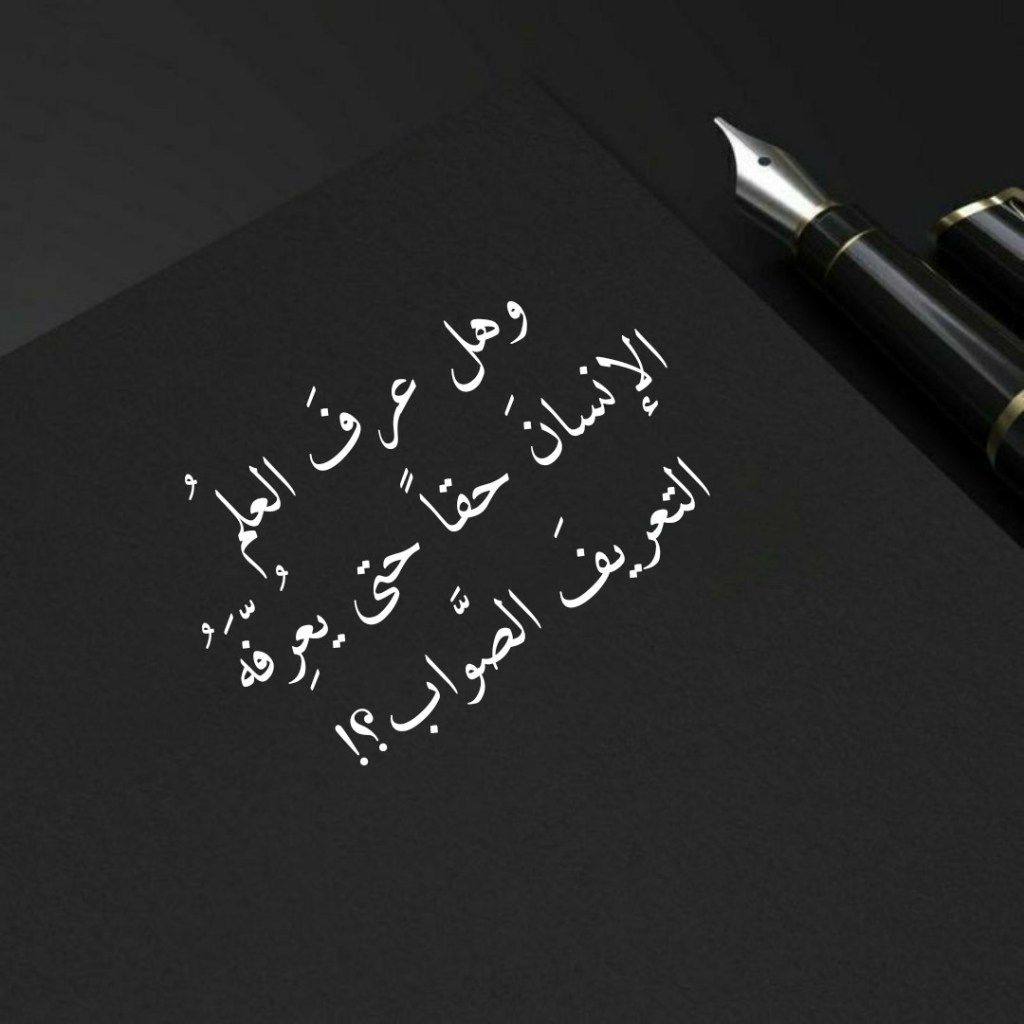 وهل عرفَ العلمُ
الإنسانَ حقاً حتى يعرِفَّهُ
التعريفَ الصَّواب؟!